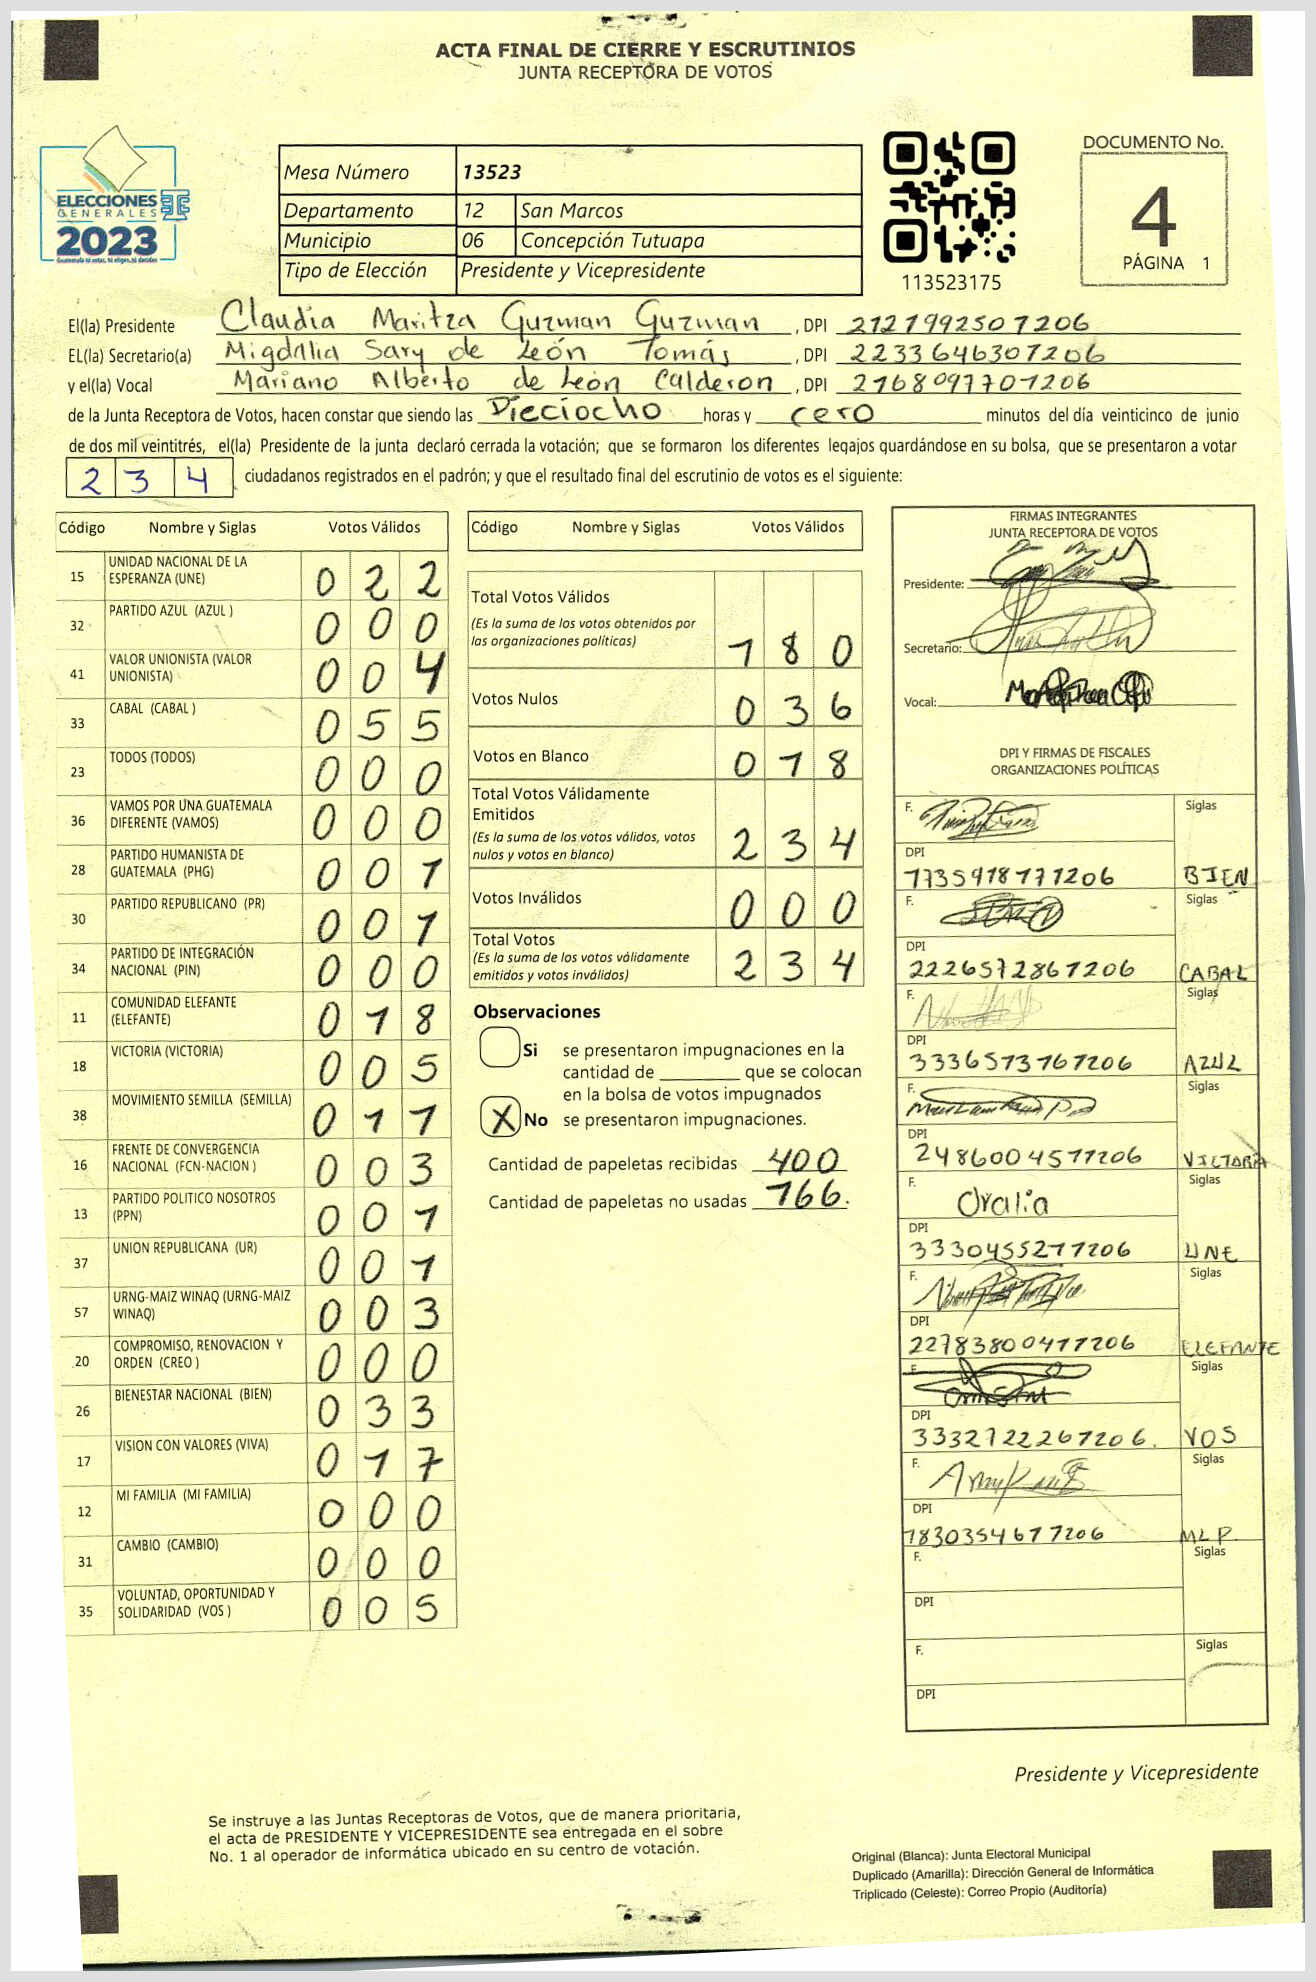 ACTA FINAL DE CIERRE Y ESCRUTINIOS
JUNTA RECEPTORA DE VOTOS
ELECCIONES
GENERALES
2023
Guatemala tú votas, tú eliges, tú decides
Mesa Número 13523
Departamento 12 San Marcos
Municipio 06 Concepción Tutuapa
Tipo de Elección Presidente y Vicepresidente
113523175
DOCUMENTO No.
4
PÁGINA 1
El(la) Presidente Claudia Maritza Guzman Guzman , DPI 2121992501206
EL(la) Secretario(a) Migdalia Sary de León Tomás , DPI 2233646301206
y el(la) Vocal Mariano Alberto de León Calderon , DPI 2168097701206
de la Junta Receptora de Votos, hacen constar que siendo las Dieciocho horas y cero minutos del día veinticinco de junio
de dos mil veintitrés, el(la) Presidente de la junta declaró cerrada la votación; que se formaron los diferentes legajos guardándose en su bolsa, que se presentaron a votar
234 ciudadanos registrados en el padrón; y que el resultado final del escrutinio de votos es el siguiente:
Código Nombre y Siglas Votos Válidos
15 UNIDAD NACIONAL DE LA ESPERANZA (UNE) 022
32 PARTIDO AZUL (AZUL ) 000
41 VALOR UNIONISTA (VALOR UNIONISTA) 004
33 CABAL (CABAL ) 055
23 TODOS (TODOS) 000
36 VAMOS POR UNA GUATEMALA DIFERENTE (VAMOS) 000
28 PARTIDO HUMANISTA DE GUATEMALA (PHG) 001
30 PARTIDO REPUBLICANO (PR) 001
34 PARTIDO DE INTEGRACIÓN NACIONAL (PIN) 000
11 COMUNIDAD ELEFANTE (ELEFANTE) 018
18 VICTORIA (VICTORIA) 005
38 MOVIMIENTO SEMILLA (SEMILLA) 011
16 FRENTE DE CONVERGENCIA NACIONAL (FCN-NACION ) 003
13 PARTIDO POLITICO NOSOTROS (PPN) 001
37 UNION REPUBLICANA (UR) 001
57 URNG-MAIZ WINAQ (URNG-MAIZ WINAQ) 003
20 COMPROMISO, RENOVACION Y ORDEN (CREO ) 000
26 BIENESTAR NACIONAL (BIEN) 033
17 VISION CON VALORES (VIVA) 017
12 MI FAMILIA (MI FAMILIA) 000
31 CAMBIO (CAMBIO) 000
35 VOLUNTAD, OPORTUNIDAD Y SOLIDARIDAD (VOS ) 005
Código Nombre y Siglas Votos Válidos
Total Votos Válidos
(Es la suma de los votos obtenidos por
las organizaciones políticas) 180
Votos Nulos 036
Votos en Blanco 018
Total Votos Válidamente
Emitidos
(Es la suma de los votos válidos, votos
nulos y votos en blanco) 234
Votos Inválidos 000
Total Votos
(Es la suma de los votos válidamente
emitidos y votos inválidos) 234
Observaciones
Si se presentaron impugnaciones en la
cantidad de ________ que se colocan
en la bolsa de votos impugnados
X No se presentaron impugnaciones.
Cantidad de papeletas recibidas 400
Cantidad de papeletas no usadas 166.
FIRMAS INTEGRANTES
JUNTA RECEPTORA DE VOTOS
Presidente:
Secretario:
Vocal:
DPI Y FIRMAS DE FISCALES
ORGANIZACIONES POLÍTICAS
F. Siglas
DPI
1735918171206 BIEN
F. Siglas
DPI
2226572861206 CABAL
F. Siglas
DPI
3336573761206 AZUL
F. Siglas
DPI
2486004571206 VICTORIA
F. Oralia Siglas
DPI
3330455271206 UNE
F. Siglas
DPI
2278380041206 ELEFANTE
F. Siglas
DPI
3332722261206. VOS
F. Siglas
DPI
1830354671206 MLP
F. Siglas
DPI
F. Siglas
DPI
Presidente y Vicepresidente
Se instruye a las Juntas Receptoras de Votos, que de manera prioritaria,
el acta de PRESIDENTE Y VICEPRESIDENTE sea entregada en el sobre
No. 1 al operador de informática ubicado en su centro de votación.
Original (Blanca): Junta Electoral Municipal
Duplicado (Amarilla): Dirección General de Informática
Triplicado (Celeste): Correo Propio (Auditoría)